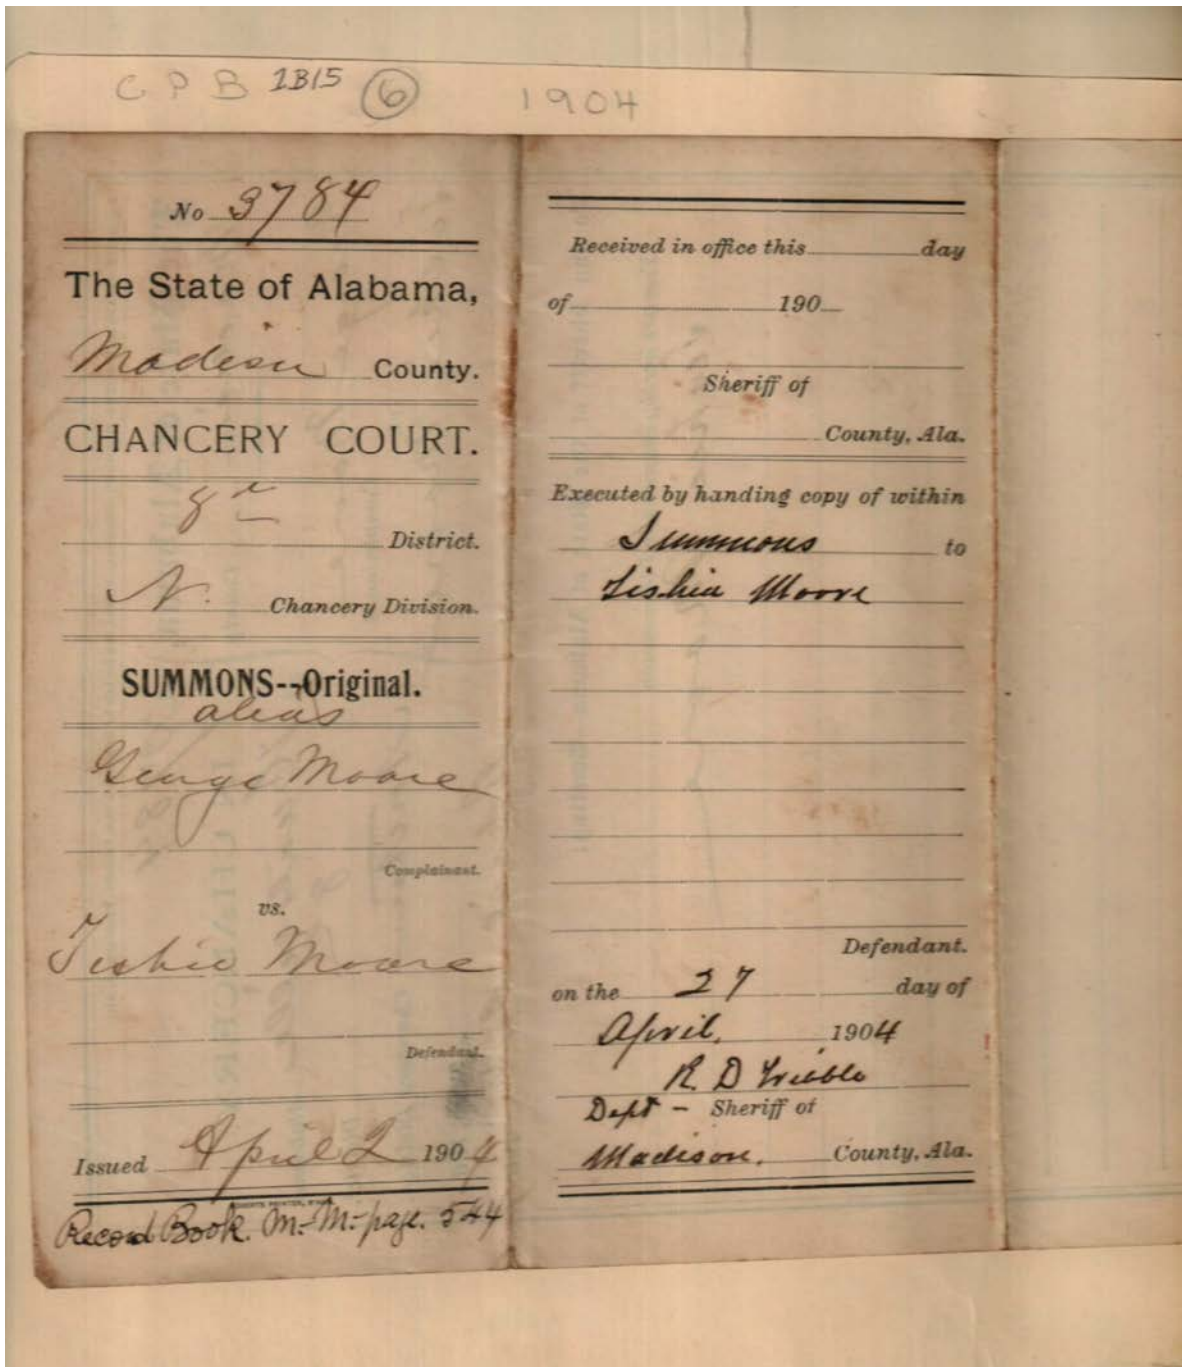 CPB 1B15 6 1904
No 3784
The State of Alabama,
Madison County.
CHANCERY COURT.
8th
District.
N. Chancery Division.
SUMMONS--Original.
alias
George Moore
Complainant.
vs.
Tishie Moore
Defendant.
Issued April 2 1904
Record Book. M.-M.- page. 544
Received in office this day
of 190
Sheriff of
County, Ala.
Executed by handing copy of within
Summons to
Tishia Moore
Defendant.
on the 27 day of
April, 1904
R. D
Dept - Sheriff of
Madison, County, Ala.